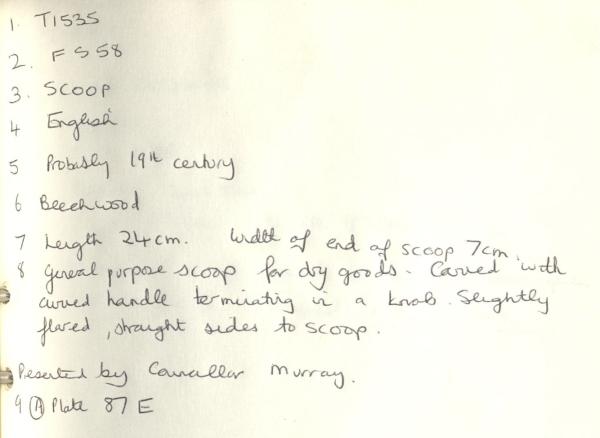 1. T1535
2. FS58
3. SCOOP
4 English
5 Probably 19th century
6 Beechwood
7 Length 24cm. Width of end of scoop 7cm.
8 General purpose scoop for dry goods. Carved with
curved handle terminating in a knob. Slightly
flared, straight sides to scoop.
Presented by Councillor Murray.
9 (A) Plate 87 E